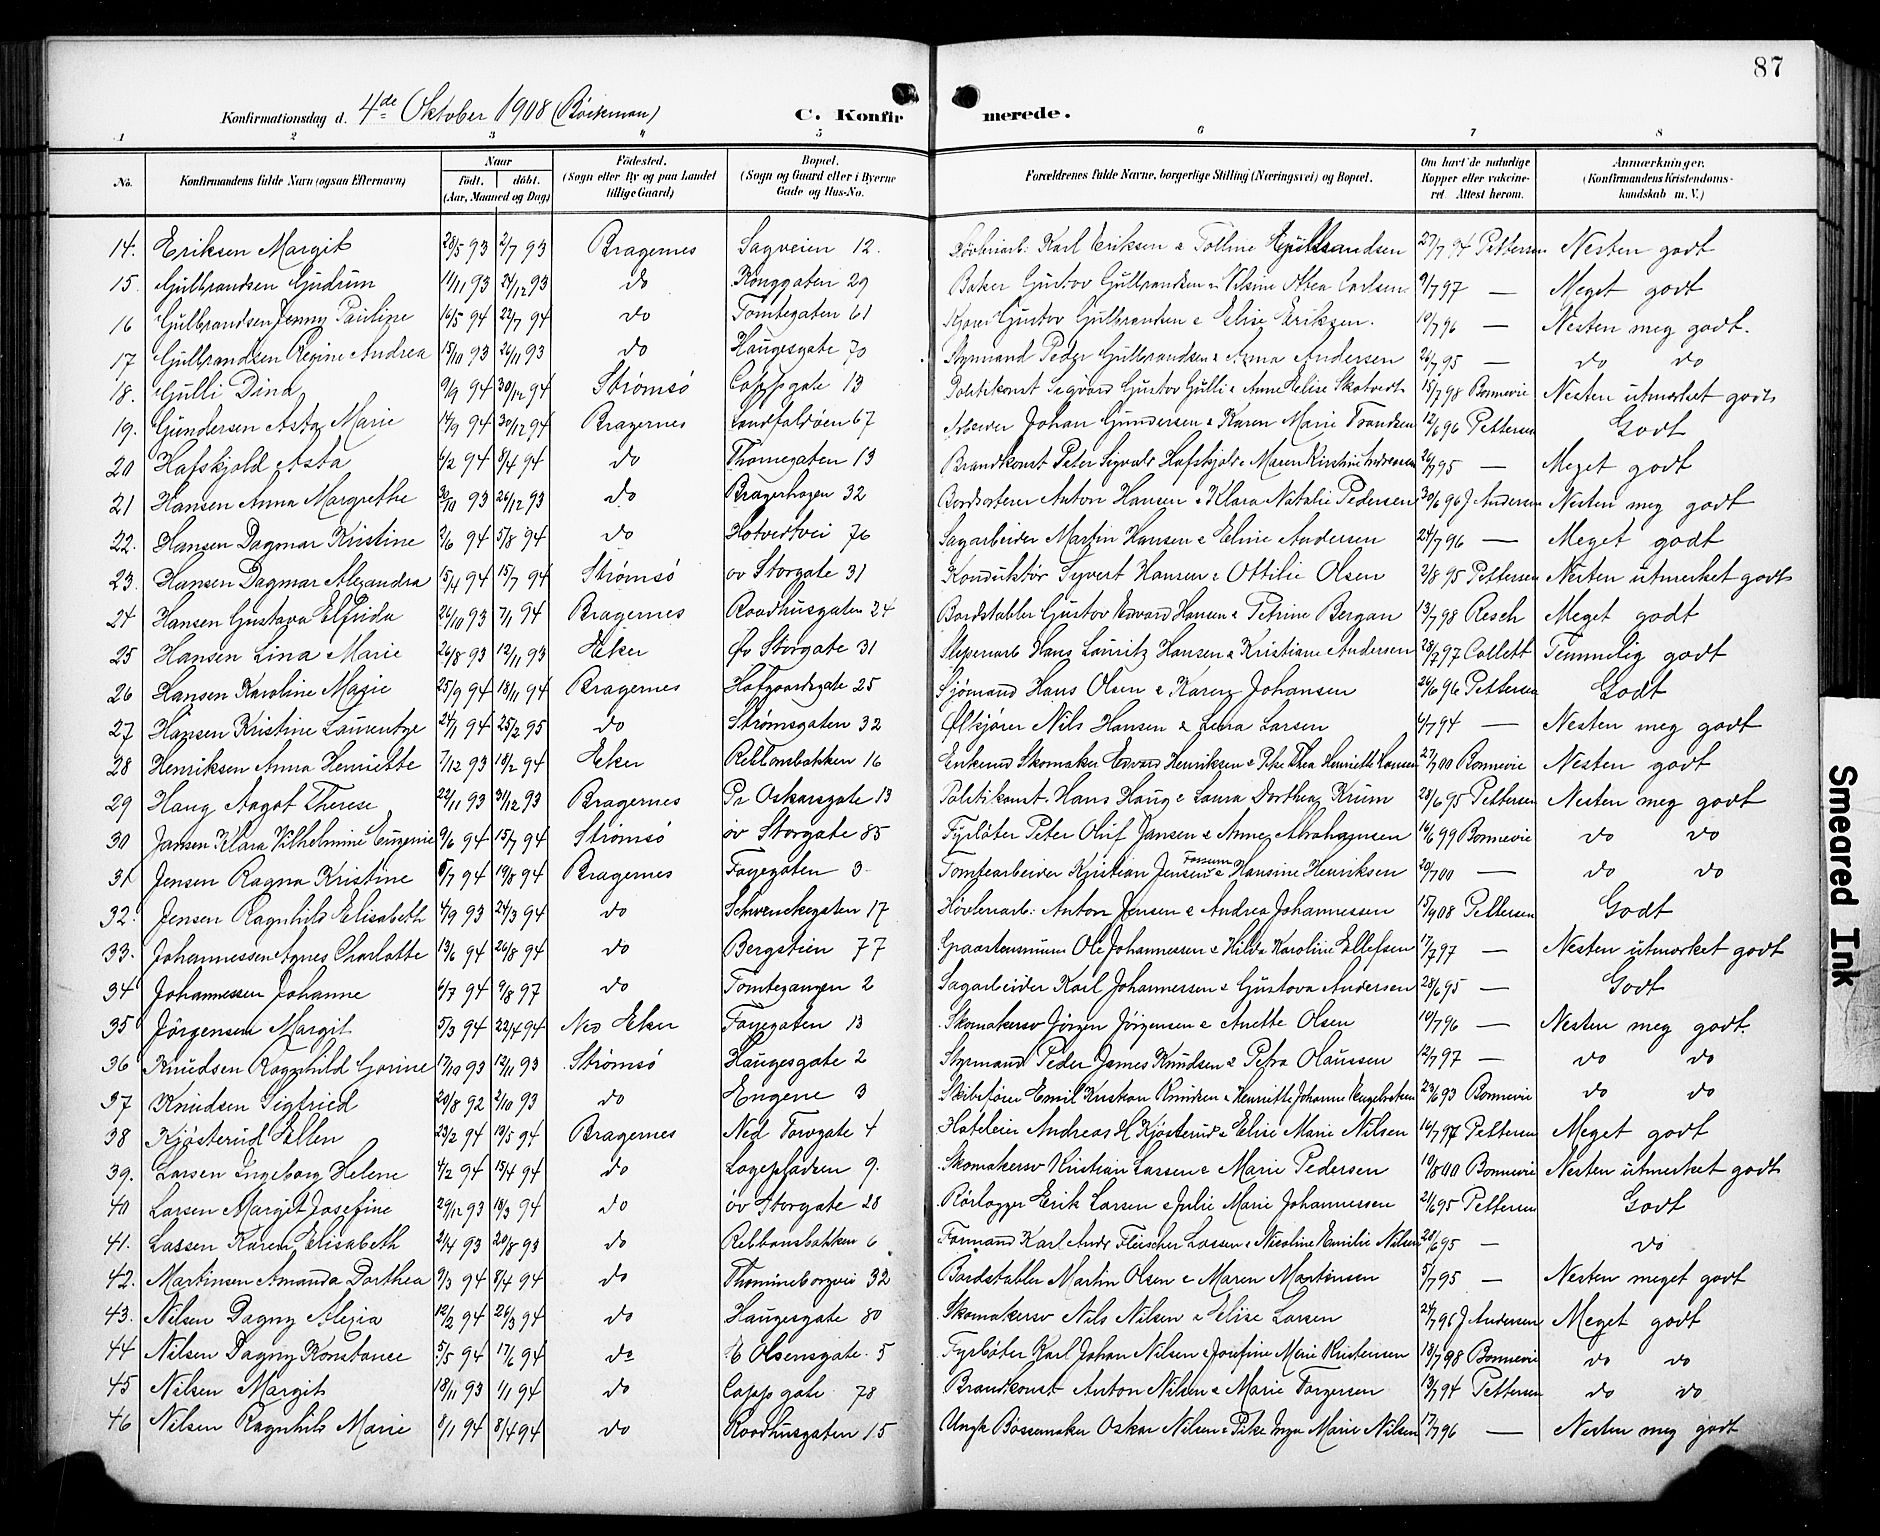 87
Konfirmationsdag d. 4de Oktober 1908 (Böckman) C. Konfirmerede.
1 2 3 4 5 6 7 8
No. Konfirmandens fulde Navn (ogsaa Efternavn) Naar født. døbt. (Aar, Maaned og Dag) Fødested. (Sogn eller By og paa Landet tillige Gaard) Bopæl. (Sogn og Gaard eller i Byerne Gade og Hus-No. Forældrenes fulde Navne, borgerlige Stilling (Næringsvei) og Bopæl. Om havt de naturlige Kopper eller vakcineret Attest herom. Anmærkninger. (Konfirmandens Kristendomskundskab m. V.)
14. Eriksen Margit 28/5 93 2/7 93 Bragernes Sagveien 12. Karl Eriksen & 27/7 94 Pettersen Nesten godt
15. Gulbrandsen Gudrun 14/11 93 24/12 93 do Konggaten 29 Baker Gustav Gulbrandsen & Carlsen 9/7 97 — Meget godt
16 Gulbrandsen Jenny Pauline 16/5 94 22/7 94 do Tomtegaten 61 Gustav Gulbrandsen & Elise Eriksen. 19/7 96 — Nesten meg godt.
17 Gulbrandsen Regine Andrea 15/10 93 26/11 93 do Haugesgate 70 Styrmand Peder Gulbrandsen & Anna Andersen 26/7 95 — do do
18. Gulli Dina 9/9 94 30/12 94 Strømsø Cappsgate 13 Politikonst Sigvard Gustav Gulli & Anne Elise Skotvedt 15/7 98 Bonnevie Nesten utmerket godt
19. Gundersen Asta Marie 14/9 94 30/12 94 Bragernes Landfaldöen 67 Johan Gundersen & Karen Marie Trandsen 12/6 96 Pettersen Godt
20 Hafskjold Asta 6/2 94 8/4 94 do Thornegaten 13 Brandkonst Peter Sigvald Hafskjold & Maren Kirstine Andreassen 26/7 95 — Meget godt
21 Hansen Anna Margrethe 30/10 93 26/12 93 do Bragerhagen 32 Bordsorterer Anton Hansen & Klara Natalie Pedersen 30/6 96 J Andersen Nesten meg godt
22. Hansen Dagmar Kristine 2/6 94 5/8 94 do Hotvedtvei 76 Sagarbeider Martin Hansen & Eline Andersen 24/7 96 — Meget godt
23. Hansen Dagmar Alexandra 15/4 94 15/7 94 Strømsö öv Storgate 31 Konduktör Syvert Hansen & Ottilie Olsen 2/8 95 Pettersen Nesten utmerket godt
24 Hansen Gustava Elfrida 26/10 93 7/1 94 Bragernes Raadhusgaten 24 Bordstabler Gustav Edvard Hansen & Petrine Bergan 13/7 98 Resch Meget godt
25 Hansen Lina Marie 26/8 93 12/11 93 Eker Øv Storgate 31 Sliperiarb Hans Lauritz Hansen & Kristiane Andersen 28/7 97 Collett Temmelig godt
26 Hansen Karoline Marie 25/9 94 18/11 94 Bragernes Hafgaardsgate 25 Sjömand Hans Olsen & Karen Johansen 26/6 96 Pettersen Godt
27 Hansen Kristine Laurentze 24/1 94 25/2 95 do Strömsgaten 32 Ølkjører Nils Hansen & Lena Larsen 6/7 94 — Nesten meg godt
28 Henriksen Anna Henriette 7/12 93 18/2 94 Eker Rebbansbakken 16 Enkemd Skomaker Edvard Henriksen & Pike Thea Henriette Hansen 27/7 00 Bonnevie Nesten godt
29 Haug Aagot Therese 22/11 93 31/12 93 Bragernes Pr Oskarsgate 13 Politikonst. Hans Haug & Laura Dorthea Krum 28/6 95 Pettersen Nesten meg godt
30 Jansen Klara Vilhelmine Eugenie 9/6 94 15/7 94 Strömsö öv Storgate 85 Fyrböter Peter Oluf Jansen & Anne Abrahamsen 16/6 99 Bonnevie do do
31 Jensen Ragna Kristine 8/7 94 19/8 94 Bragernes Fayegaten 3. Tomtearbeider Kristian Jensen Fossum & Hansine Henriksen 20/7 00 — do do
32. Jensen Ragnhild Elisabeth 4/9 93 24/3 94 do Schwenckegaten 17 Hövleriarb: Anton Jensen & Andrea Johannessen 15/9 08 Pettersen Godt
33. Johannessen Agnes Charlotte 13/6 94 26/8 94 do Bergstien 77 Ole Johannessen & Hilda Karoline Ellefsen 17/7 97 — Nesten utmerket godt
34 Johannessen Johanne 6/7 94 9/8 97 do Tomtegangen 2 Sagarbeider Karl Johannessen & Gustava Andersen 28/6 95 — Godt
35 Jörgensen Margit 5/3 94 22/4 94 Ned Eker Fayegaten 13 Skomakersv Jörgen Jörgensen & Anette Olsen 10/7 96 — Nesten meg godt.
36 Knudsen Ragnhild Gorine 17/10 93 12/11 93 Strømsö Haugesgate 2 Styrmand Peder James Knudsen & Petra Olaussen 12/7 97 — do do
37 Knudsen Sigfried 20/8 92 2/10 93 do Engene 3 Skibsförer Emil Kristian Knudsen & Henriette Johanne Engebretsen 23/6 93 Bonnevie do do
38 Kjösterud Ellen 23/2 94 13/5 94 Bragernes Ned Torvgate 4 Hoteleier Andreas H Kjösterud & Elise Marie Nilsen 14/7 97 Pettersen Meget godt
39. Larsen Ingeborg Helene 4/2 94 15/4 94 do Logepladsen 9. Skomakersv Kristian Larsen & Marie Pedersen 10/8 00 Bonnevie Nesten utmerket godt
40 Larsen Margit Josefine 29/12 93 18/3 94 do öv Storgate 28 Rörlægger Erik Larsen & Julie Marie Johannessen 21/6 95 Pettersen Godt
41. Lassen Karen Elisabeth 2/4 93 20/8 93 do Rebbansbakken 6 Formand Karl Andr Fleischer Lassen & Nicoline Emilie Nilsen 20/6 95 — do
42. Martinsen Amanda Dorthea 9/3 94 8/4 94 do Thomineborgvei 32 Bordstabler Martin Olsen & Maren Martinsen 5/7 95 — Nesten meget godt
43. Nilsen Dagny Alexia 12/2 94 26/3 94 do Haugesgate 80 Skomakersv Nils Nilsen & Elise Larsen 24/7 96 J Andersen Meget godt
44 Nilsen Dagny Konstance 5/5 94 17/6 94 do Olsensgate 5 Fyrböter Karl Johan Nilsen & Josefine Marie Kristensen 18/7 98 Bonnevie do do
45 Nilsen Margit 18/11 93 1/1 94 do Capps gate 78 Brandkonst Anton Nilsen & Marie Torgersen 13/7 94 Pettersen do do
46 Nilsen Ragnhild Marie 8/1 94 8/4 94 do Raadhusgaten 15 Ungk Bössemaker Oskar Nilsen & Pike Inga Marie Nilsen 17/7 96 — Nesten meg godt
Smeared Ink